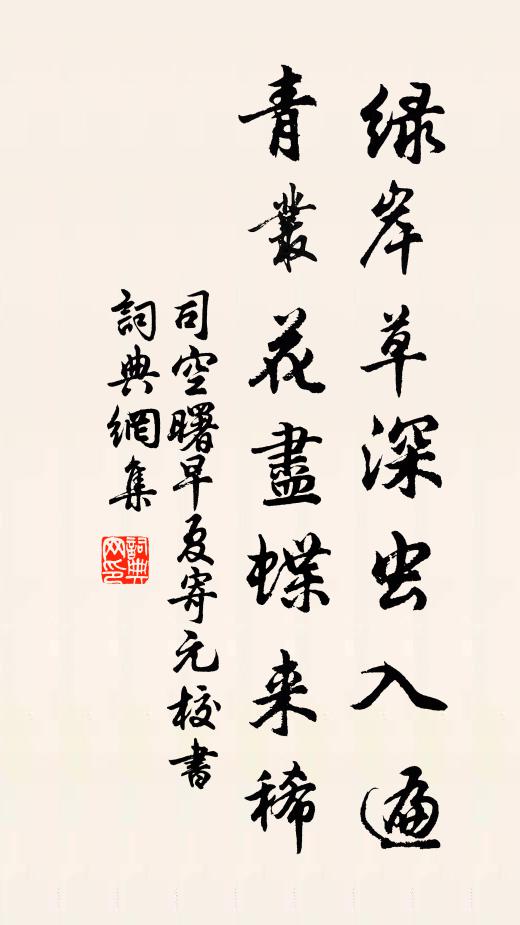 绿岸草深虫入遍
青叢花盡蝶来稀
司空曙早夏寄元校書
詞典網集
詞典网印